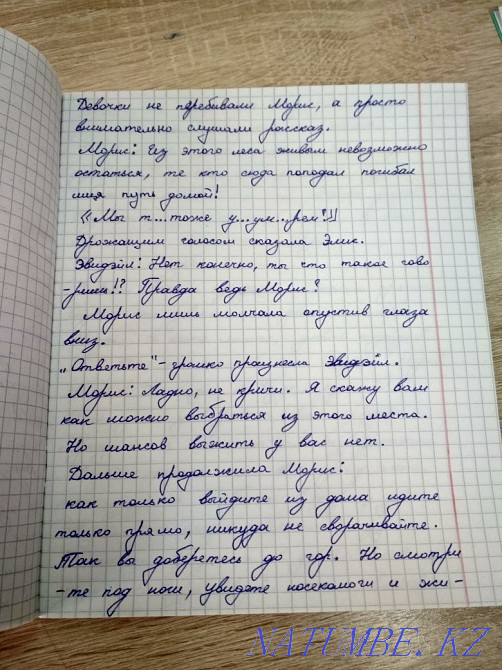 Девочки не перебивали Морис, а просто
внимательно слушали рассказ.
Морис: Из этого леса живым невозможно
остаться, те кто сюда попадал погибал
ища путь домой!
«Мы т...тоже у...ум...рем?!»
Дрожащим голосом сказала Элис.
Эвидэйл: Нет конечно, ты что такое гово
-ришь!? Правда ведь Морис?
Морис лишь молчала опустив глаза
вниз.
„Ответьте" - громко произнесла Эвидэйл.
Морис: Ладно, не кричи. Я скажу вам
как можно выбраться из этого места.
Но шансов выжить у вас нет.
Дальше продолжила Морис:
как только выйдите из дома идите
только прямо, никуда не сворачивайте.
Так вы доберетесь до гор. Но смотри
-те под ноги, увидете и жи-
NATUMBE.KZ